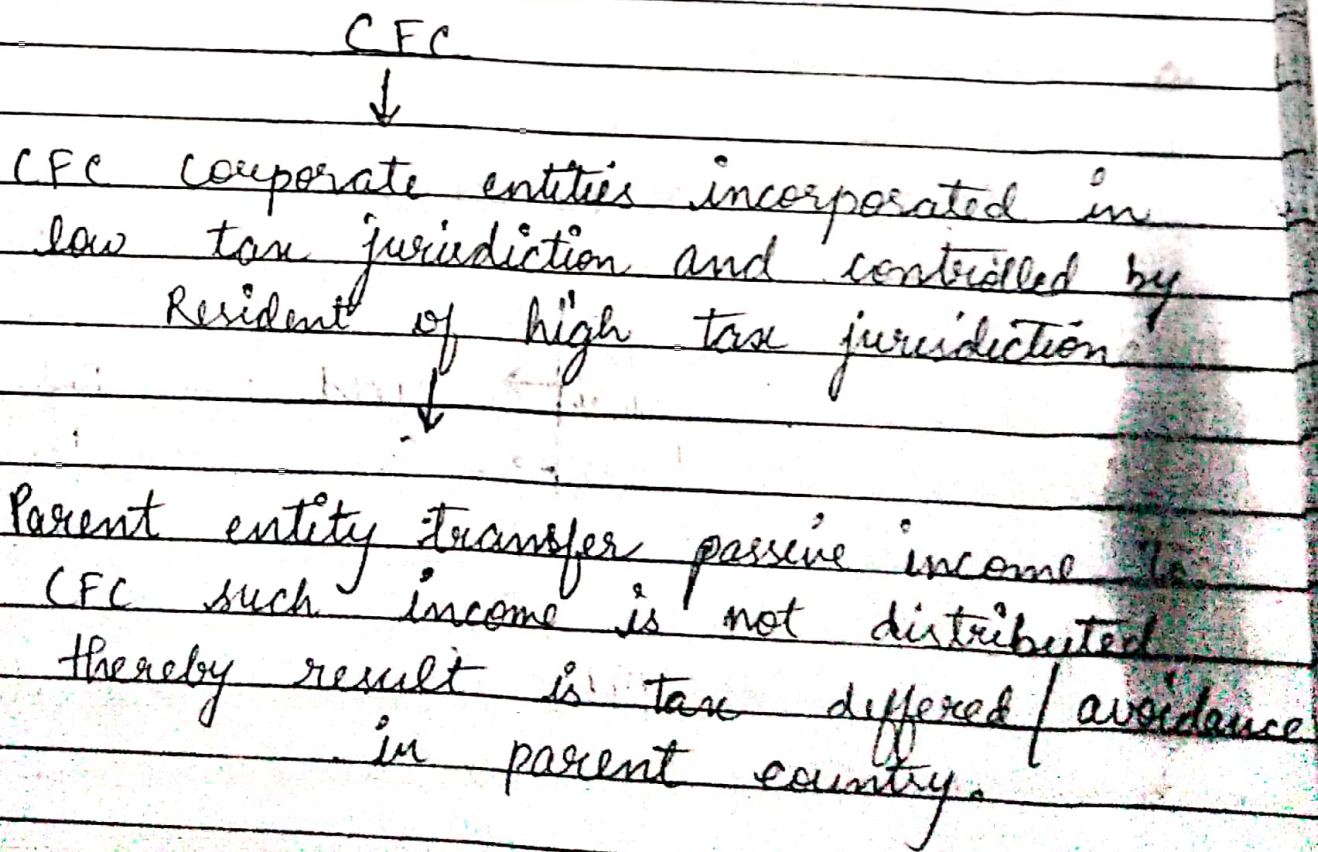 CFC
↓
CFC corporate entities incorporated in
low tax jurisdiction and controlled by
Resident of high tax jurisdiction
↓
Parent entity transfer passive income to
CFC such income is not distributed
thereby result is tax differed / avoidance
in parent country.